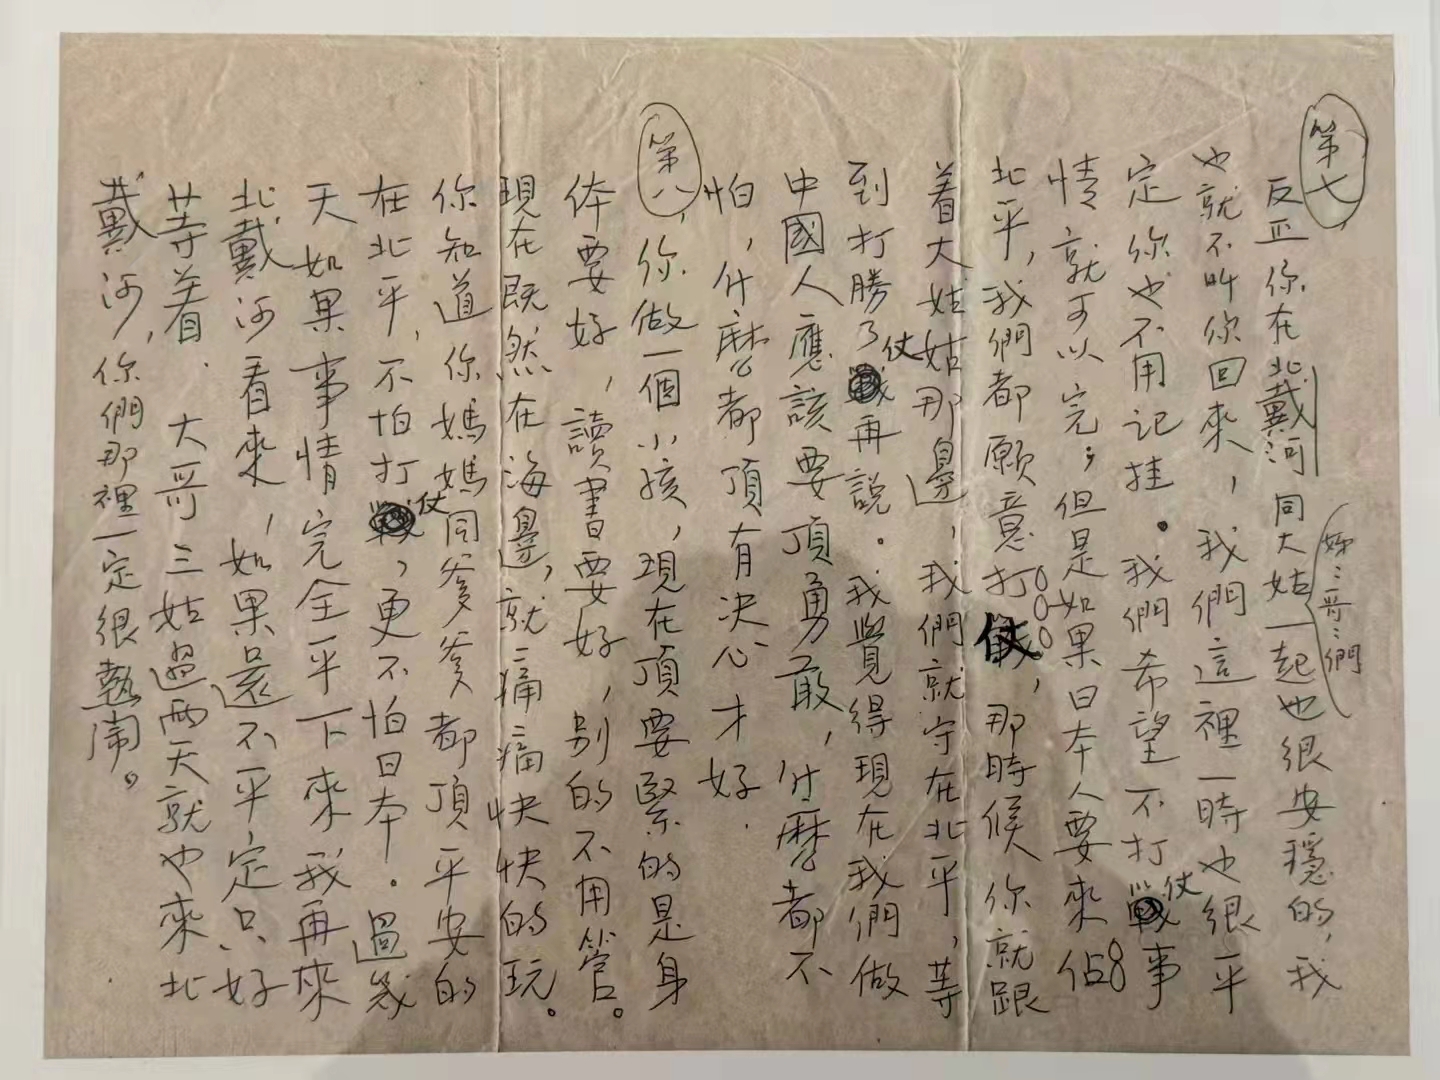 第七
反正你在北戴河同大姑一起也很安穩的，我
姊〻哥〻們
也就不叫你回來，我們這裡一時也很平
定你也不用记挂。我們希望不打仗事
情就可以完；但是如果日本人要來佔
北平，我們都願意打仗，那時候你就跟
着大姑姑那邊，我們就守在北平，等
到打勝了仗再説。我覺得現在我們做
中國人應該要頂勇敢，什麼都不
怕，什麼都頂有决心才好．
第八，你做一個小孩，現在頂要緊的是身
体要好，讀書要好，别的不用管。
現在既然在海邊，就〻痛〻痛快快的玩。
你知道你媽媽同爹爹都頂平安的
在北平，不怕打仗，更不怕日本．過幾
天如果事情完全平下來我再來
北戴河看你，如果還不平定只好
等着．大哥三姑過两天就也來北
戴河，你們那裡一定很熱鬧。